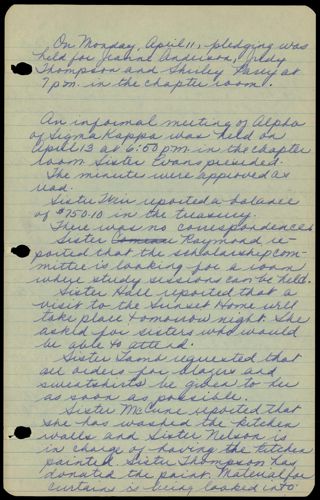 On Monday, April 11, pledging was
held for Jeanne Anderson, Judy
Thompson and Shirley at
7 p.m. in the chapter room.
An informal meeting of Alpha
of Sigma Kappa was held on
April 13 at 6:50 p.m. in the chapter
room. Sister Evans presided.
The minutes were approved as
read.
Sister reported a balance
of $750.10 in the treasury.
There was no correspondence.
Sister Raymond re-
ported that the scholarship com-
mittee is looking for a room
where study sessions can be held.
Sister Hall reported that a
visit to the Sunset Home will
take place tomorrow night. She
asked for sisters who would
be able to attend.
Sister Lamb requested that
all orders for blazers and
sweatshirts be given to her
as soon as possible.
Sister McCune reported that
she has washed the kitchen
walls and Sister Nelson is
in charge of having the kitchen
painted. Sister Thompson has
donated the paint. Material for
curtains is being looked into